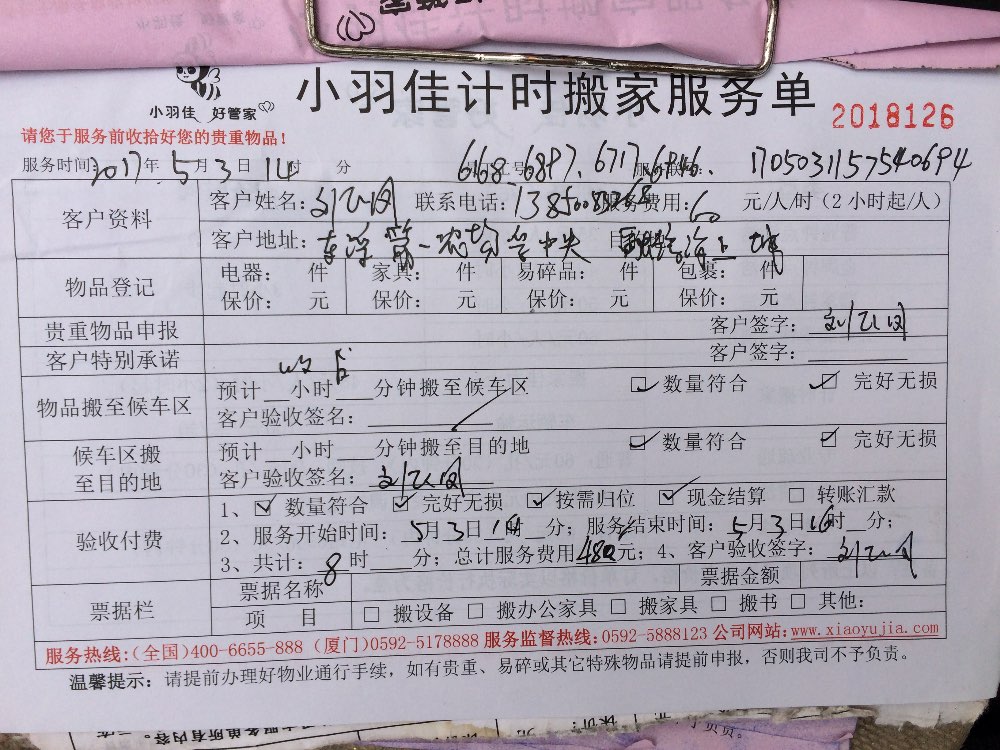 小羽佳 好管家
小羽佳计时搬家服务单
2018126
请您于服务前收拾好您的贵重物品！
服务时间：2017年5月3日14时 分 6168.6897.6717.6846. 170503115754069​4
客户资料 客户姓名： 联系电话： 服务费用：60 元/人/时（2小时起/人）
客户地址： 目的
物品登记 电器： 件 家具： 件 易碎品： 件 包裹： 件
保价： 元 保价： 元 保价： 元 保价： 元
贵重物品申报 客户签字：
客户特别承诺 客户签字：
物品搬至候车区 预计__小时__分钟搬至候车区 数量符合 完好无损
客户验收签名：
候车区搬至目的地 预计__小时__分钟搬至目的地 数量符合 完好无损
客户验收签名：
验收付费 1、 数量符合 完好无损 按需归位 现金结算 转账汇款
2、服务开始时间：5月3日14时__分；服务结束时间：5月3日16时__分；
3、共计：8时__分；总计服务费用480元；4、客户验收签字：
票据栏 票据名称 票据金额
项 目 □ 搬设备 □ 搬办公家具 □ 搬家具 □ 搬书 □ 其他：
服务热线:(全国)400-6655-888 (厦门)0592-5178888 服务监督热线:0592-5888123 公司网站:www.xiaoyujia.com
温馨提示：请提前办理好物业通行手续，如有贵重、易碎或其它特殊物品请提前申报，否则我司不予负责。